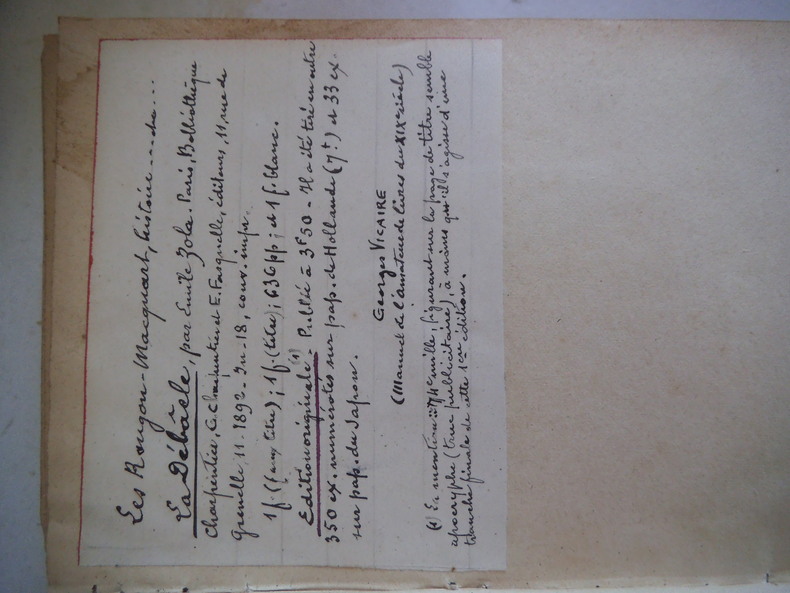 Les Rougon-Macquart, histoire .... du ...
La Débâcle, par Emile Zola. Paris, Bibliothèque
Charpentier, G. Charpentier et E. Fasquelle, éditeurs, 11, rue de
Grenelle, 11 - 1892 - In-18, couv. impr.
1 f. (faux titre); 1 f. (titre); 636 pp; et 1 f. blanc.
Edition originale (1). Publié à 3f50 - Il a été tiré en outre
350 ex. numérotés sur pap. de Hollande (7f) et 33 ex.
sur pap. du Japon.
Georges VICAIRE
(Manuel de l'amateur de livres du XIXe siècle)
(1) La mention 4e mille, figurant sur la page de titre semble
apocryphe (truc publicitaire), à moins qu'il s'agisse d'une
tranche finale de cette 1ère édition.